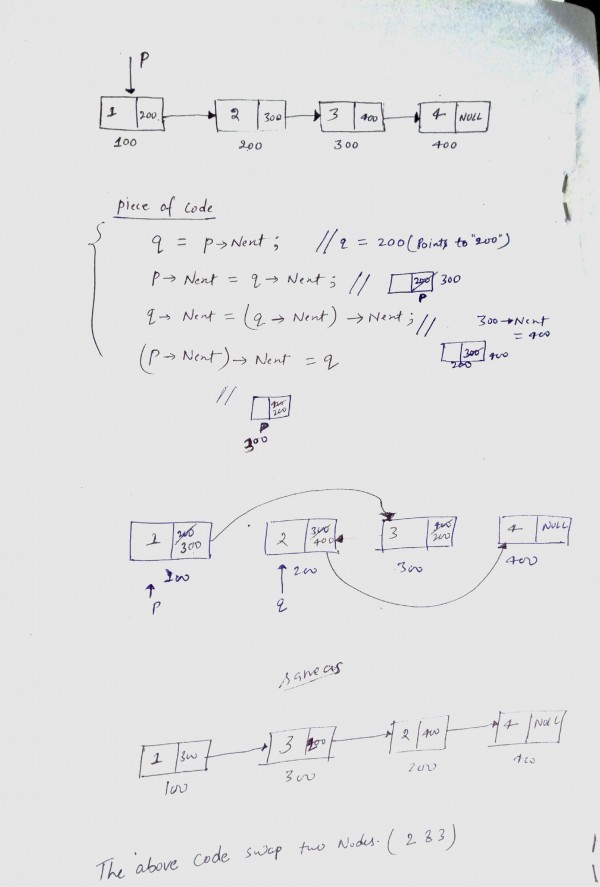 P
1 200 2 300 3 400 4 NULL
100 200 300 400
piece of code
q = p→Next; // q = 200 (Points to "200")
P→Next = q→Next; // 200 300
P
q→Next = (q→Next)→Next; // 300→Next
= 400
300 400
200
(P→Next)→Next = q
// 400
200
P
300
1 200 300 2 300 400 3 400 200 4 NULL
100 200 300 400
P q
same as
1 300 3 2 400 4 NULL
100 300 200 400
The above code swap two Nodes. (2 & 3)